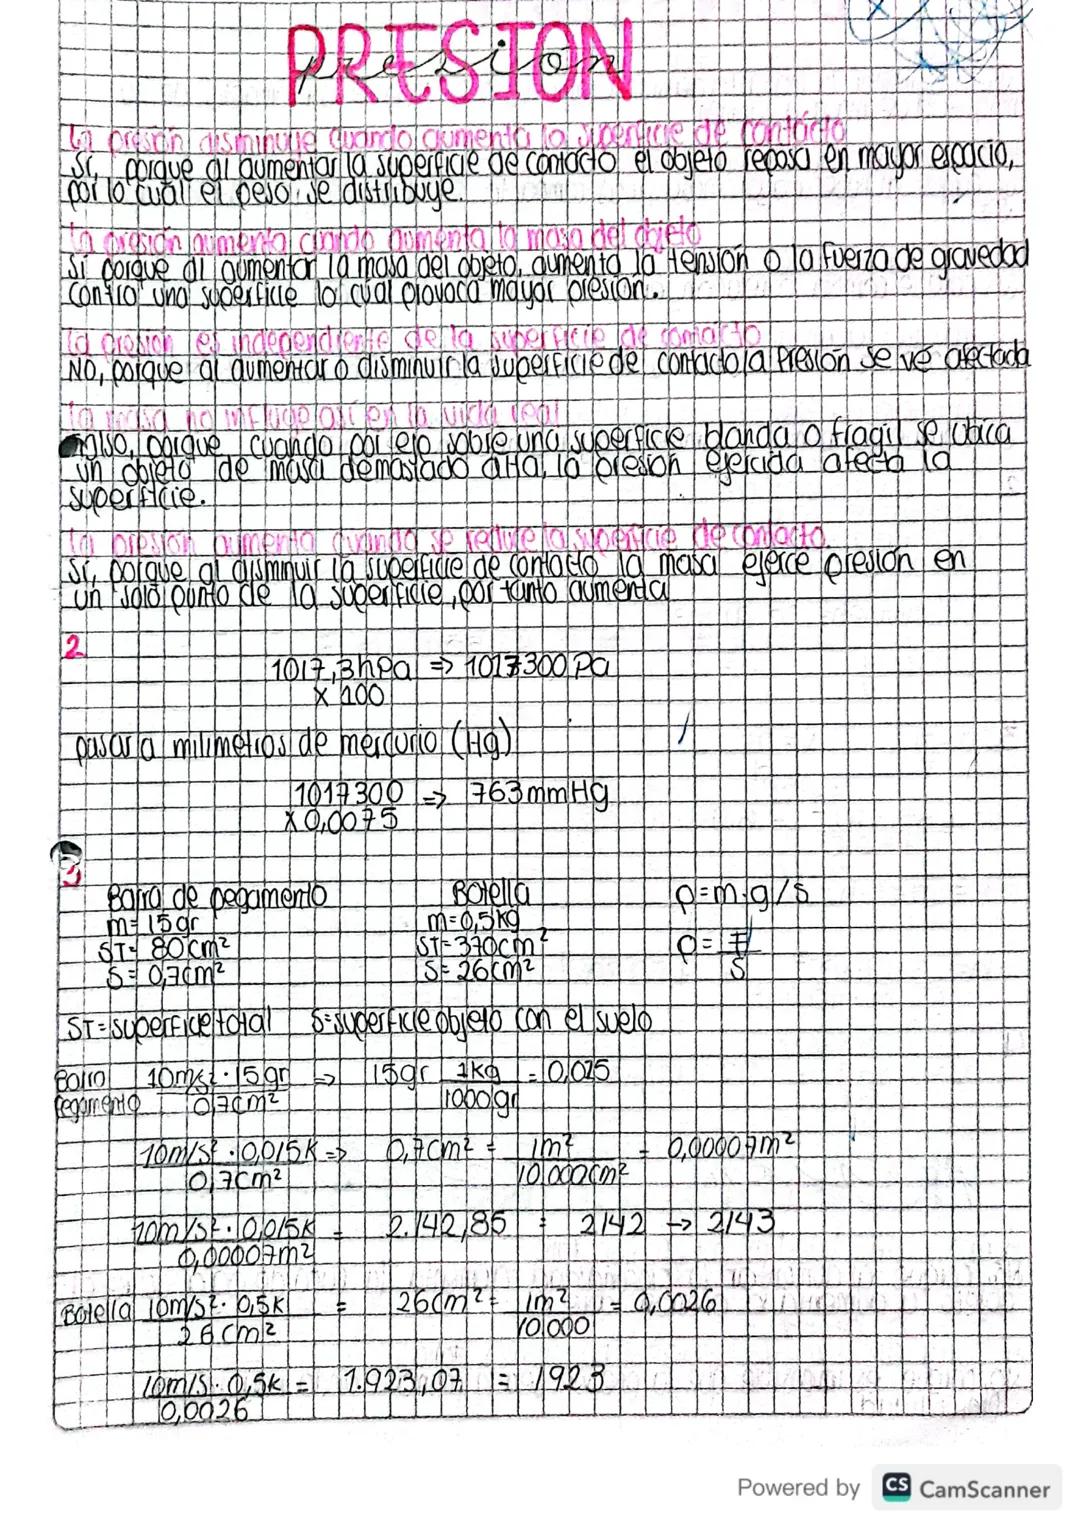 PRESION
Presion
la presión disminuye cuando aumenta la superficie de contacto
Si, porque al aumentar la superficie de contacto el objeto reposa en mayor espacio,
por lo cual el peso se distribuye.
la presión aumenta cuando aumenta la masa del objeto
Si porque al aumentar la masa del objeto, aumenta la tensión o la fuerza de gravedad
contra una superficie lo cual provoca mayor presion.
la presion es independiente de la superficie de contacto
NO, porque al aumentar o disminuir la superficie de contacto la Presión se ve afectada
la masa no influye así en la vida real
Falso, porque cuando por ejo sobre una superficie blanda o fragil se ubica
un objeto de masa demasiado alta, la presion ejercida afecta la
superficie.
la presion aumenta cuando se reduce la superficie de contacto
Si, porque al disminuir la superficie de contacto la masa ejerce presion en
un solo punto de la superficie, por tanto aumenta
2
1017,3hpa => 1017300 Pa
x 100
pasar a milimetros de mercurio (Hg)
1017300 => 763mmHg
x 0,0075
3
Barra de pegamento Botella p=m.g/s
m= 15gr m=0,5kg
ST= 80cm² ST=370cm² p= F/S
S= 0,7cm² S= 26cm²
ST=superficie total S=superficie objeto con el suelo
Barra 10m/s².15gr => 15gr 1kg = 0,015
Pegamento 0,7cm² 1000gr
10m/s².0,015K => 0,7cm² = 1m² = 0,00007m²
0,7cm² 10.000cm²
10m/s².0,015K = 2.142,85 = 2142 → 2143
0,00007m²
Botella 10m/s².0,5K = 26cm² = 1m² = 0,0026
26cm² 10.000
10m/s.0,5K = 1.923,07 = 1923
0,0026
Powered by CS CamScanner